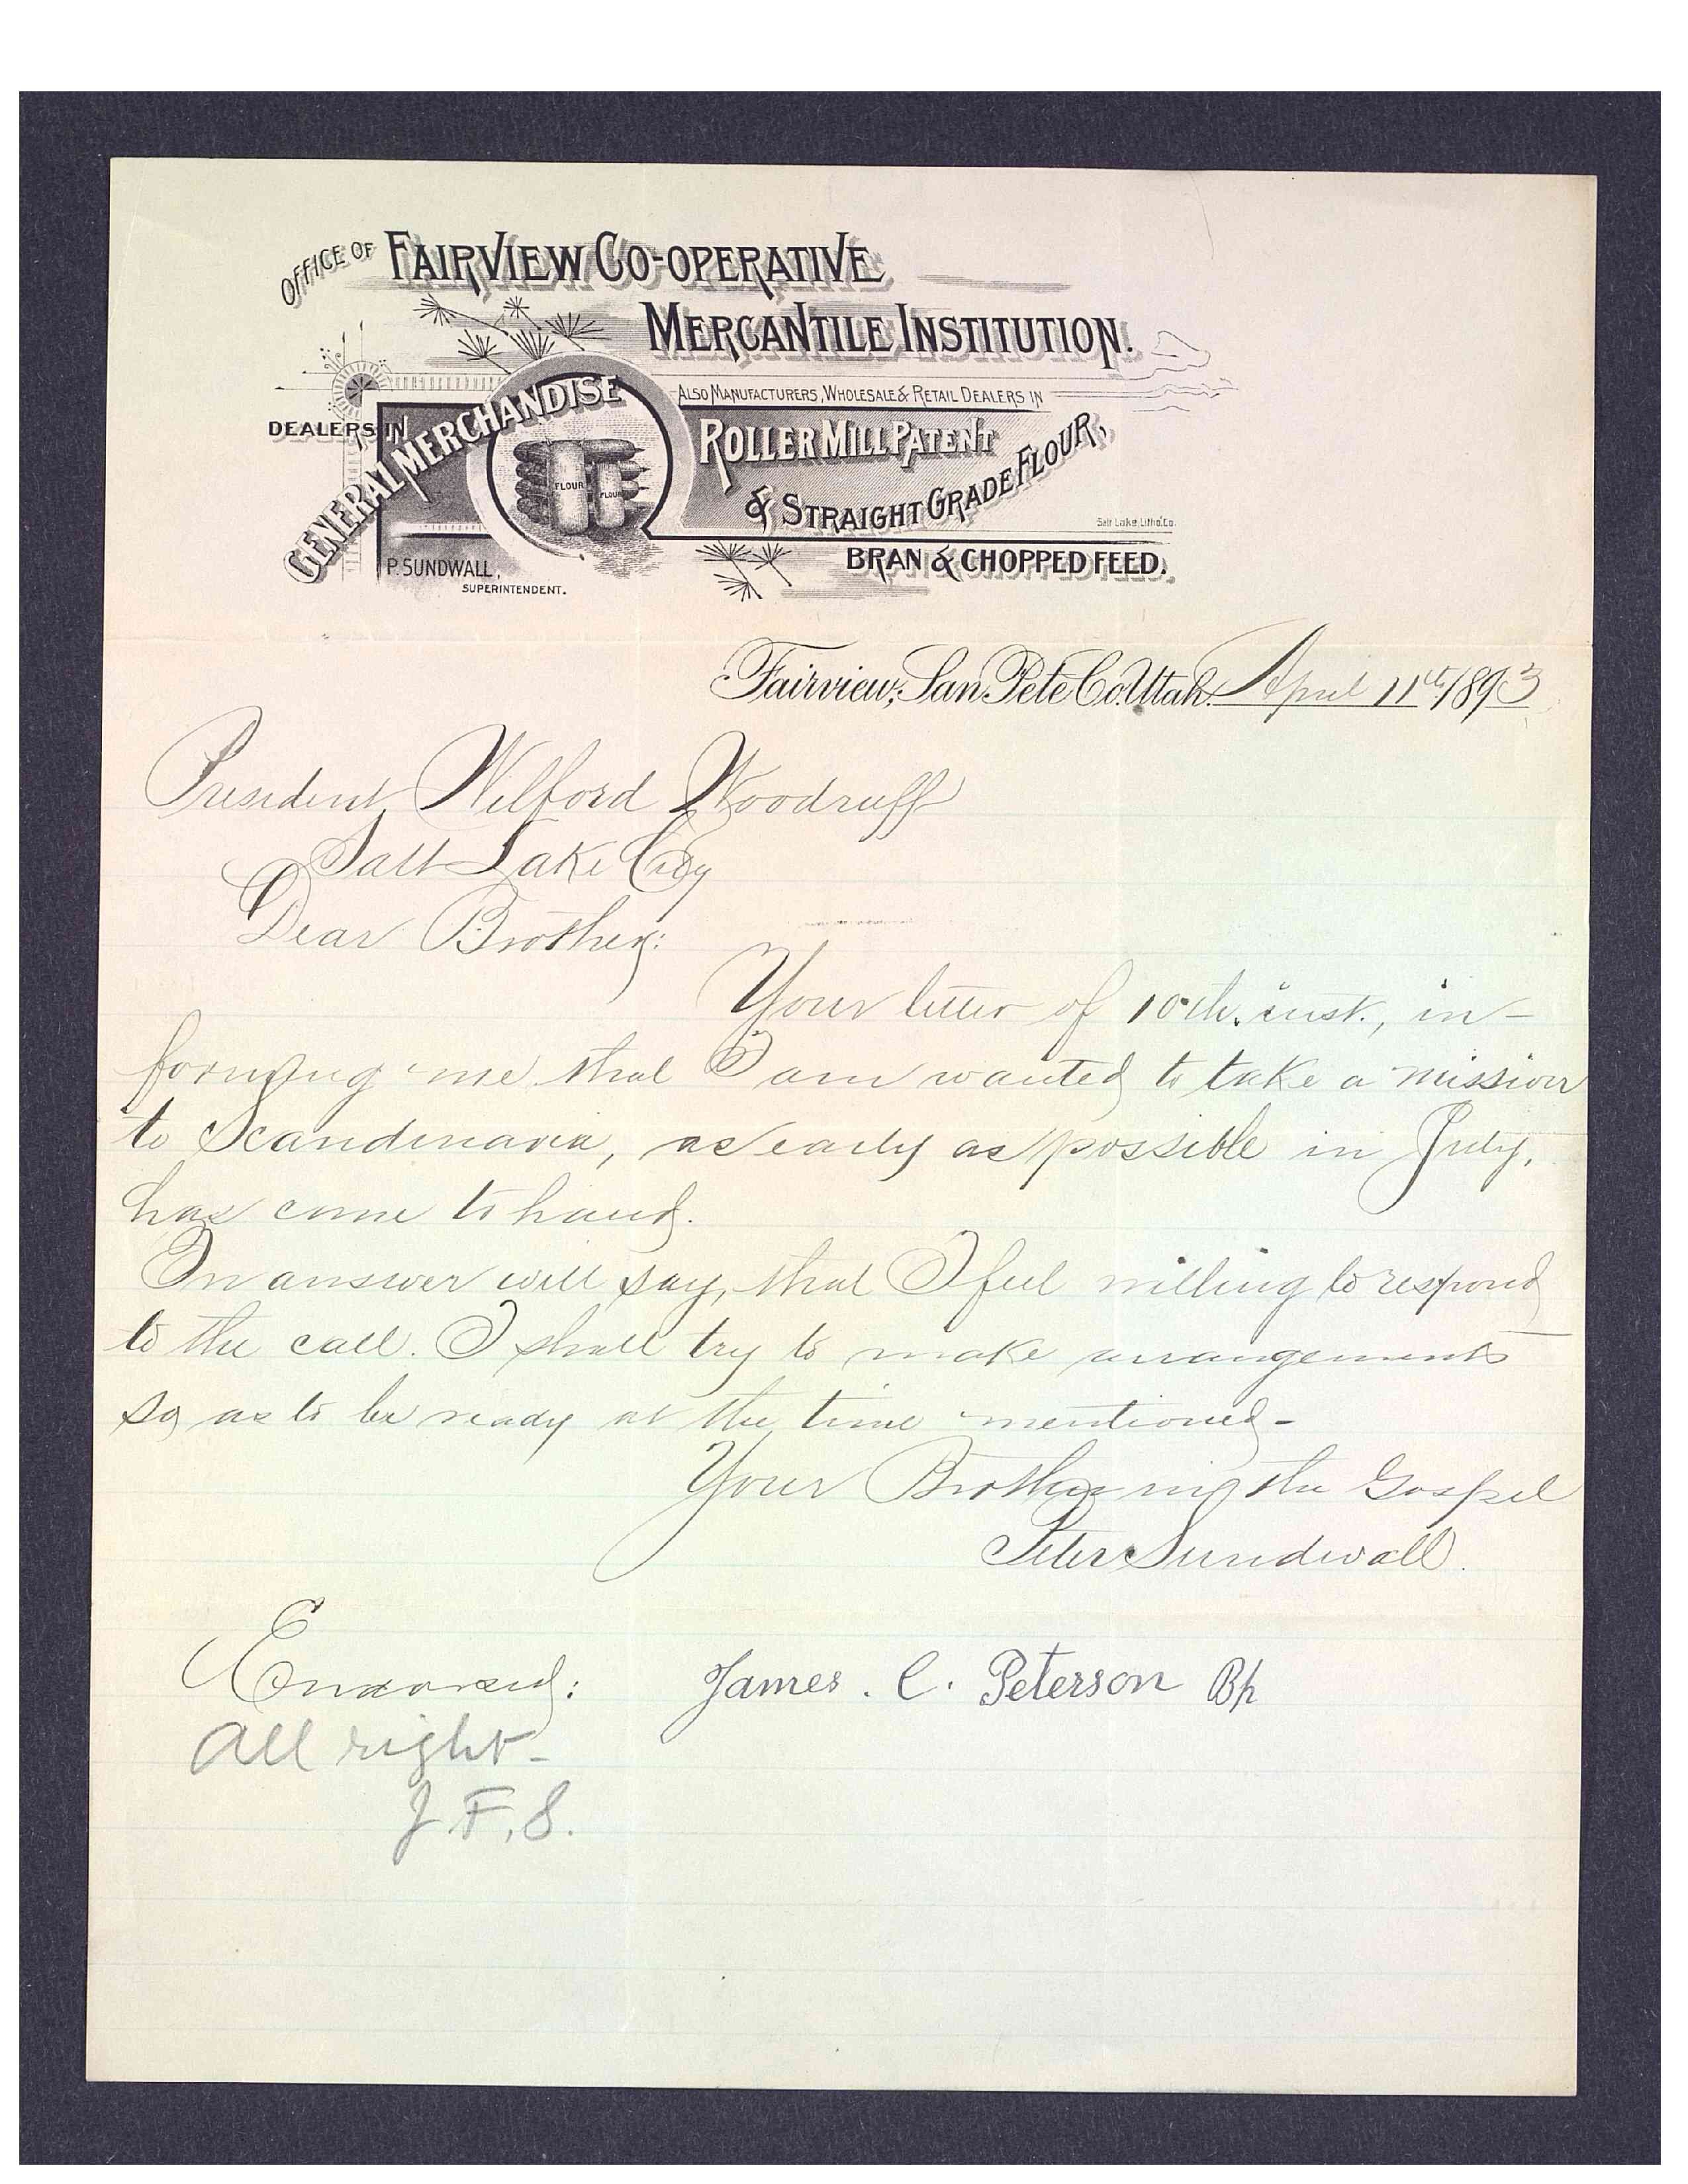 OFFICE OF FAIRVIEW CO-OPERATIVE
MERCANTILE INSTITUTION.
DEALERS IN
GENERAL MERCHANDISE
ALSO MANUFACTURERS, WHOLESALE & RETAIL DEALERS IN
ROLLER MILL PATENT
& STRAIGHT GRADE FLOUR,
FLOUR
FLOUR
Salt Lake Litho. Co.
BRAN & CHOPPED FEED.
P. SUNDWALL,
SUPERINTENDENT.
Fairview, San Pete Co. Utah. April 11th 1893
President Wilford Woodruff
Salt Lake City
Dear Brother:
Your letter of 10th. inst., in-
forming me that I am wanted to take a mission
to Scandinavia, as early as possible in July,
has come to hand.
In answer will say, that I feel willing to respond
to the call. I shall try to make arrangements
so as to be ready at the time mentioned-
Your Brother in the Gospel
Peter Sundwall.
Endorsed: James. C. Peterson Bp
All right-
J. F. S.